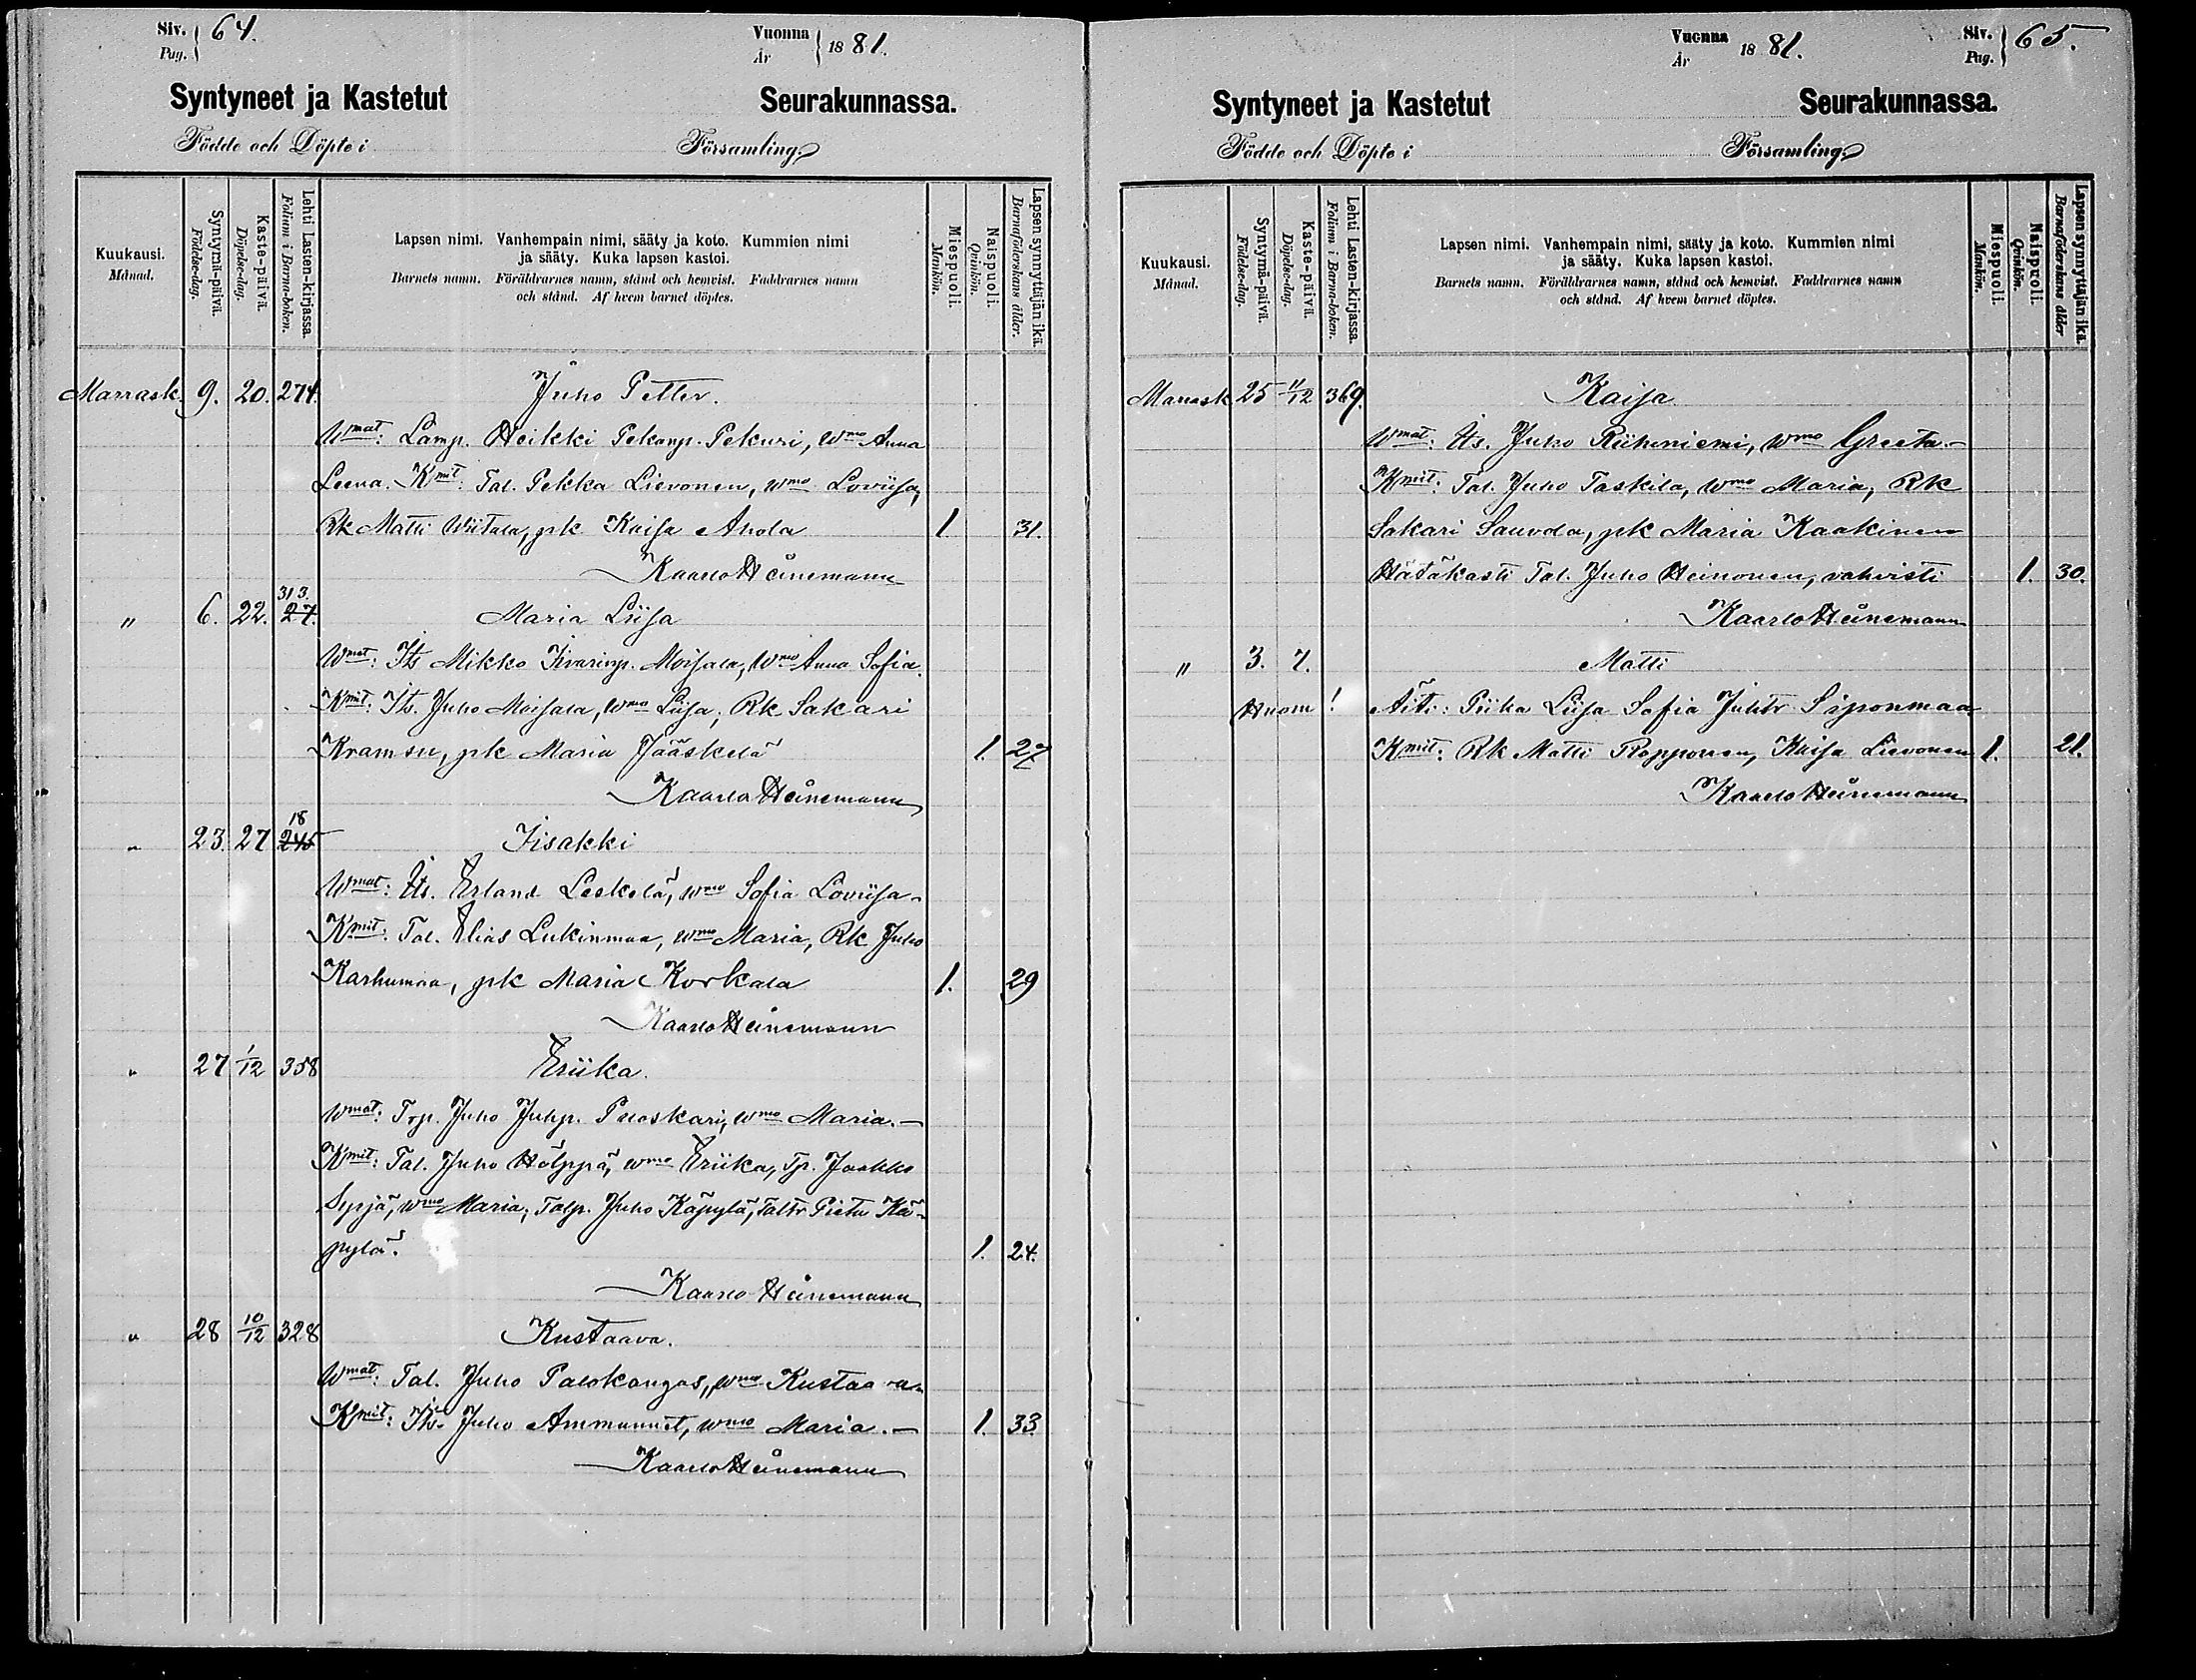 Siv. Pag. 64.
Vuonna År 1881.
Syntyneet ja Kastetut Seurakunnassa.
Födde och Döpte i Församling.
Kuukausi. Månad.
Syntymä-päivä. Födelse-dag.
Kaste-päivä. Döpelse-dag.
Lehti Lasten-kirjassa. Folium i Barna-boken.
Lapsen nimi. Vanhempain nimi, sääty ja koto. Kummien nimi
ja sääty. Kuka lapsen kastoi.
Barnets namn. Föräldrarnes namn, stånd och hemvist. Faddrarnes namn
och stånd. Af hvem barnet döptes.
Miespuoli. Mankön.
Naispuoli. Qvinkön.
Lapsen synnyttäjän ikä. Barnaföderskans ålder.
Marrask. 9. 20. 274. Juho Petter.
Wmat: Lamp. Heikki Pekanp. Pekuri, wmo Anna
Leena. Kmit: Tal. Pekka Lievonen, wmo Loviisa,
Rk Matti Wiitala, pk Kaisa Ahola 1 31.
Kaarlo Heinemann
313.
" 6. 22. 27. Maria Liisa
Wmat: Its Mikko Iivarinp. Moisala, Wmo Anna Sofia.
Kmit: Its. Juho Moisala, wmo Liisa, Rk Sakari
Kramsu, pk Maria Jääskelä 1. 27
Kaarlo Heinemann
18
" 23. 27 245 Iisakki
Wmat: Its. Erland Leskelä, wmo Sofia Loviisa.
Kmit: Tal. Elias Lukinmaa, wmo Maria, Rk Juho
Karhumaa, pk Maria Korkala 1. 29
Kaarlo Heinemann
" 27 1/12 358 Eriika.
Wmat: Trp. Juho Juhp. Puoskari, wmo Maria.—
Kmit: Tal. Juho Hölppä, wmo Eriika, Tp. Jaakko
Sypjä, wmo Maria, Talp. Juho Käpylä, Taltr Pieta Kä-
pylä. 1. 24.
Kaarlo Heinemann
" 28 10/12 328 Kustaava.
Wmat: Tal. Juho Palokangas, wmo Kustaava
Kmit: Its. Juho Ammunnét, wmo Maria.— 1. 33.
Kaarlo Heinemann
Vuonna År 1881.
Siv. Pag. 65.
Syntyneet ja Kastetut Seurakunnassa.
Födde och Döpte i Församling.
Kuukausi. Månad.
Syntymä-päivä. Födelse-dag.
Kaste-päivä. Döpelse-dag.
Lehti Lasten-kirjassa. Folium i Barna-boken.
Lapsen nimi. Vanhempain nimi, sääty ja koto. Kummien nimi
ja sääty. Kuka lapsen kastoi.
Barnets namn. Föräldrarnes namn, stånd och hemvist. Faddrarnes namn
och stånd. Af hvem barnet döptes.
Miespuoli. Mankön.
Naispuoli. Qvinkön.
Lapsen synnyttäjän ikä. Barnaföderskans ålder
Marrask 25 11/12 369. Kaisa
Wmat: Its. Juho Riihiniemi, wmo Greeta.—
Kmit: Tal. Juho Taskila, wmo Maria, Rk
Sakari Sauvola, pk Maria Kaakinen
Hätäkasti Tal. Juho Heinonen, vahvisti 1. 30.
Kaarlo Heinemann
" 3. 7. Matti
Huom! Äiti: Piika Liisa Sofia Juhtr Siponmaa
Kmit: Rk Matti Ropponen, Kaisa Lievonen 1. 21.
Kaarlo Heinemann